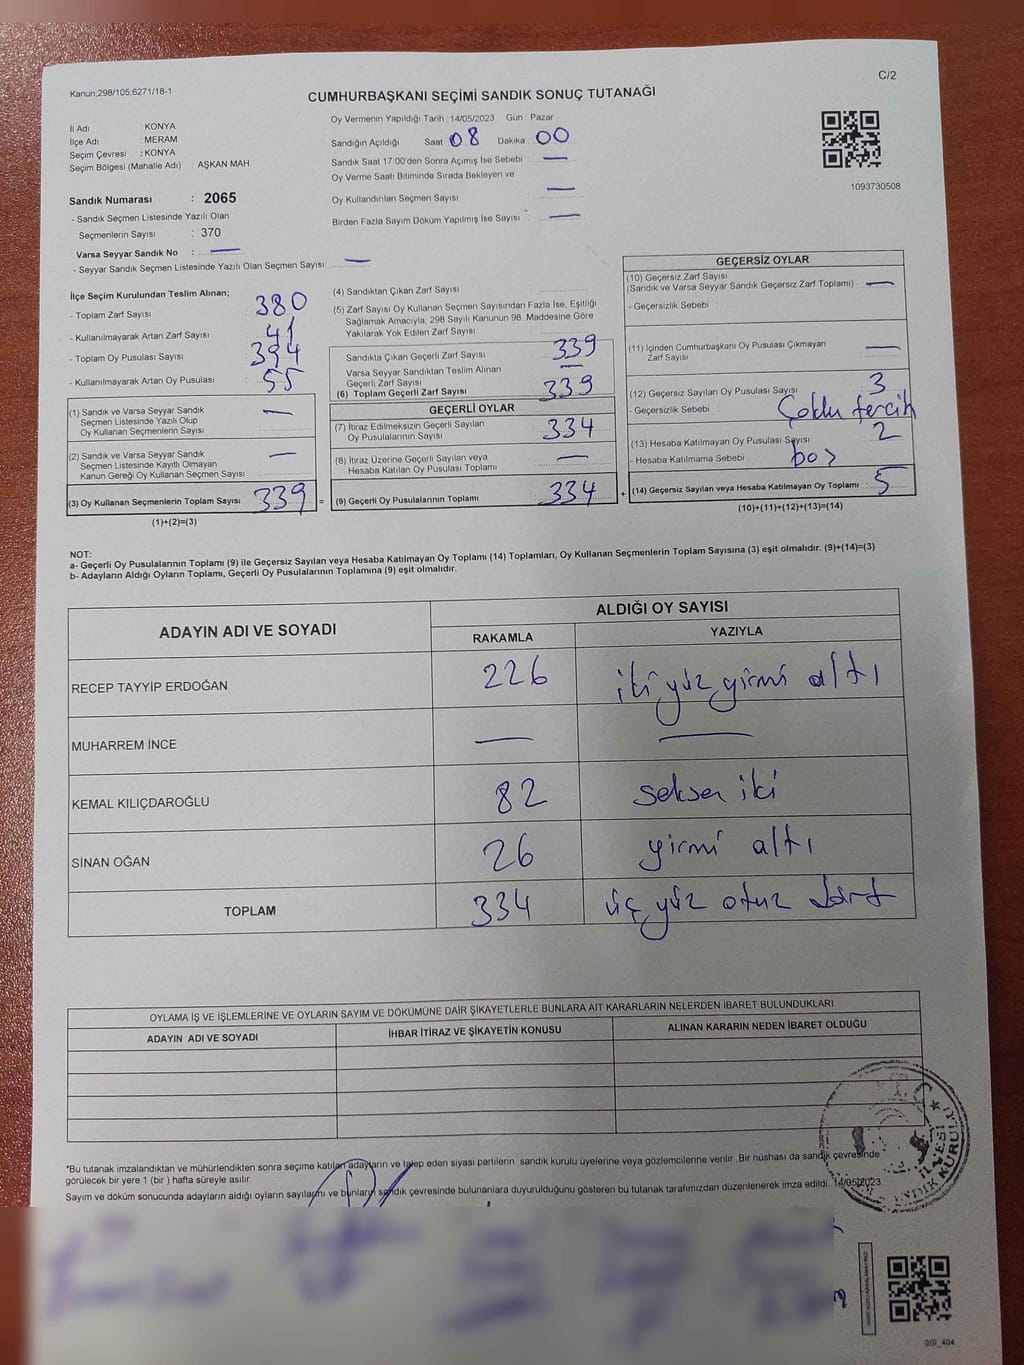 Kanun;298/105,6271/18-1
C/2
CUMHURBAŞKANI SEÇİMİ SANDIK SONUÇ TUTANAĞI
İl Adı : KONYA
İlçe Adı : MERAM
Seçim Çevresi : KONYA
Seçim Bölgesi (Mahalle Adı) : AŞKAN MAH.
Sandık Numarası : 2065
- Sandık Seçmen Listesinde Yazılı Olan
Seçmenlerin Sayısı : 370
Varsa Seyyar Sandık No : —
- Seyyar Sandık Seçmen Listesinde Yazılı Olan Seçmen Sayısı: —
Oy Vermenin Yapıldığı Tarih : 14/05/2023 Gün : Pazar
Sandığın Açıldığı Saat 08 Dakika : 00
Sandık Saat 17.00'den Sonra Açımış İse Sebebi : —
Oy Verme Saati Bitiminde Sırada Bekleyen ve
Oy Kullandırılan Seçmen Sayısı : —
Birden Fazla Sayım Döküm Yapılmış İse Sayısı : —
1093730508
İlçe Seçim Kurulundan Teslim Alınan;
- Toplam Zarf Sayısı : 380
- Kullanılmayarak Artan Zarf Sayısı : 41
- Toplam Oy Pusulası Sayısı : 394
- Kullanılmayarak Artan Oy Pusulası : 55
(1) Sandık ve Varsa Seyyar Sandık
Seçmen Listesinde Yazılı Olup
Oy Kullanan Seçmenlerin Sayısı : —
(2) Sandık ve Varsa Seyyar Sandık
Seçmen Listesinde Kayıtlı Olmayan
Kanun Gereği Oy Kullanan Seçmen Sayısı : —
(3) Oy Kullanan Seçmenlerin Toplam Sayısı : 339 =
(1)+(2)=(3)
(4) Sandıktan Çıkan Zarf Sayısı :
(5) Zarf Sayısı Oy Kullanan Seçmen Sayısından Fazla İse, Eşitliği
Sağlamak Amacıyla, 298 Sayılı Kanunun 98. Maddesine Göre
Yakılarak Yok Edilen Zarf Sayısı :
Sandıkta Çıkan Geçerli Zarf Sayısı : 339
Varsa Seyyar Sandıktan Teslim Alınan
Geçerli Zarf Sayısı : —
(6) Toplam Geçerli Zarf Sayısı : 339
GEÇERLİ OYLAR
(7) İtiraz Edilmeksizin Geçerli Sayılan
Oy Pusulalarının Sayısı : 334
(8) İtiraz Üzerine Geçerli Sayılan veya
Hesaba Katılan Oy Pusulası Toplamı : —
(9) Geçerli Oy Pusulalarının Toplamı : 334 +
GEÇERSİZ OYLAR
(10) Geçersiz Zarf Sayısı
(Sandık ve Varsa Seyyar Sandık Geçersiz Zarf Toplamı) : —
- Geçersizlik Sebebi :
(11) İçinden Cumhurbaşkanı Oy Pusulası Çıkmayan
Zarf Sayısı : —
(12) Geçersiz Sayılan Oy Pusulası Sayısı : 3
- Geçersizlik Sebebi : Çoklu tercih
(13) Hesaba Katılmayan Oy Pusulası Sayısı : 2
- Hesaba Katılmama Sebebi : boş
(14) Geçersiz Sayılan veya Hesaba Katılmayan Oy Toplamı : 5
(10)+(11)+(12)+(13)=(14)
NOT:
a- Geçerli Oy Pusulalarının Toplamı (9) ile Geçersiz Sayılan veya Hesaba Katılmayan Oy Toplamı (14) Toplamları, Oy Kullanan Seçmenlerin Toplam Sayısına (3) eşit olmalıdır. (9)+(14)=(3)
b- Adayların Aldığı Oyların Toplamı, Geçerli Oy Pusulalarının Toplamına (9) eşit olmalıdır.
ADAYIN ADI VE SOYADI
ALDIĞI OY SAYISI
RAKAMLA YAZIYLA
RECEP TAYYİP ERDOĞAN 226 iki yüz yirmi altı
MUHARREM İNCE — —
KEMAL KILIÇDAROĞLU 82 seksen iki
SİNAN OĞAN 26 yirmi altı
TOPLAM 334 üç yüz otuz dört
OYLAMA İŞ VE İŞLEMLERİNE VE OYLARIN SAYIM VE DÖKÜMÜNE DAİR ŞİKAYETLERLE BUNLARA AİT KARARLARIN NELERDEN İBARET BULUNDUKLARI
ADAYIN ADI VE SOYADI İHBAR İTİRAZ VE ŞİKAYETİN KONUSU ALINAN KARARIN NEDEN İBARET OLDUĞU
*Bu tutanak imzalandıktan ve mühürlendikten sonra seçime katılan adayların ve talep eden siyasi partilerin sandık kurulu üyelerine veya gözlemcilerine verilir .Bir nüshası da sandık çevresinde
görülecek bir yere 1 (bir ) hafta süreyle asılır.
Sayım ve döküm sonucunda adayların aldığı oyların sayılarını ve bunların sandık çevresinde bulunanlara duyurulduğunu gösteren bu tutanak tarafımızdan düzenlenerek imza edildi. 14/05/2023
GSI_404